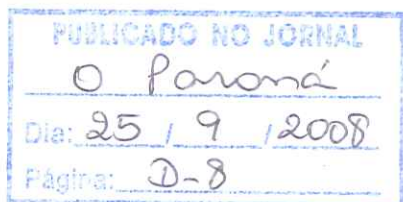 PUBLICADO NO JORNAL
O Paraná
Dia: 25 / 9 / 2008
Página: D-8